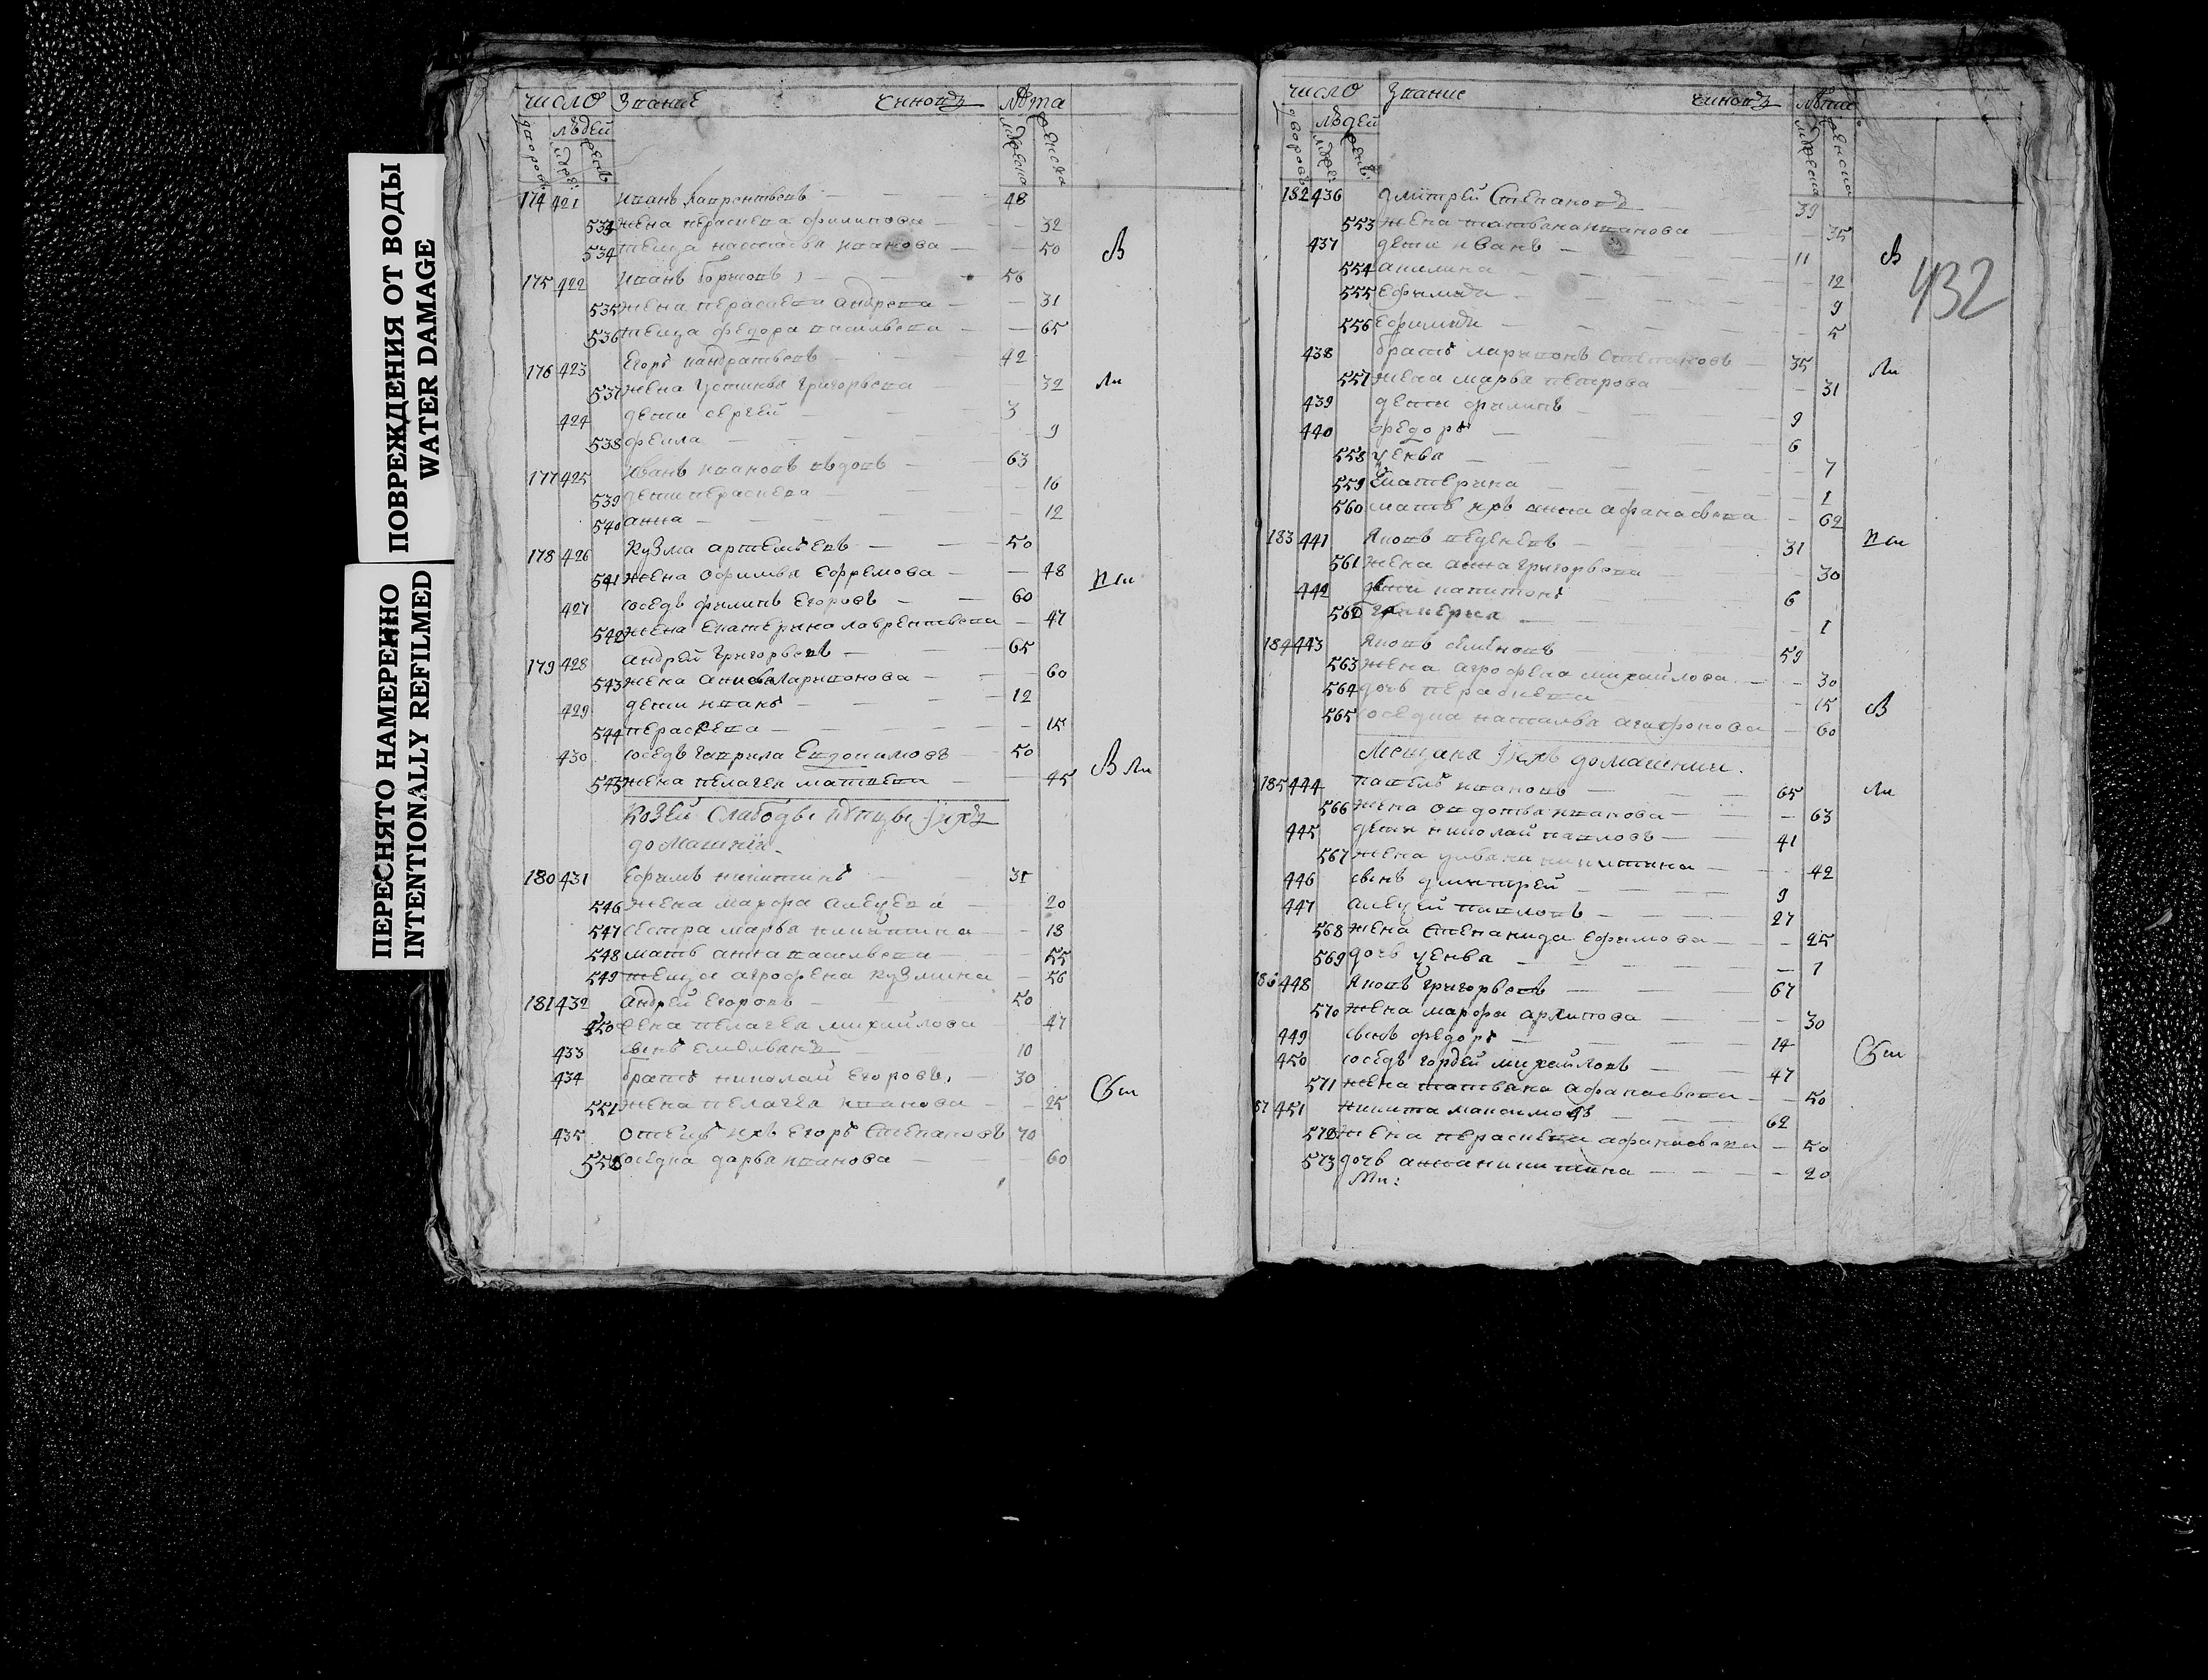 ПОВРЕЖДЕНИЯ ОТ ВОДЫ
WATER DAMAGE
ПЕРЕСНЯТО НАМЕРЕННО
INTENTIONALLY REFILMED
число Звание чиновъ лѣта
людей
174 421 Иванъ Лаврентьевъ 48
533 жена Пераскева Филипова 32
534 теща Настасья Иванова 50
В
175 422 Иванъ Борисовъ 56
535 жена Пераскева Андреева 31
536 теща Федора Васильева 65
176 423 Егоръ Кандратьевъ 42
537 жена Устинья Григорьева 32
Ли
424 дети Сергей 3
538 Фекла 9
177 425 Иванъ Ивановъ вдовъ 63
539 дети Пераскева 16
540 Анна 12
178 426 Кузма Артемьевъ 50
541 жена Офимья Ефремова 48
427 соседъ Филипъ Егоровъ 60
542 жена Екатерина Лаврентьева 47
179 428 Андрей Григорьевъ 65
543 жена Анисья Ларивонова 60
429 дети Иванъ 12
544 Пераскева 15
430 соседъ Гаврила Евдокимовъ 50
545 жена Пелагея Матвеева 45
В Ли
Козьей Слабоды купцы и ихъ
домашния
180 431 Ефимъ Никитинъ 31
546 жена Марфа Алексеева 20
547 сестра Марья Никитина 18
548 мать Анна Васильева 55
549 теща Агрофена Кузмина 56
181 432 Андрей Егоровъ 50
550 жена Пелагея Михайлова 47
433 сынъ Емельянъ 10
434 братъ Николай Егоровъ 30
551 жена Пелагея Иванова 25
435 отецъ ихъ Егоръ Степановъ 70
552 соседка Дарья Иванова 60
число Звание чиновъ лѣта
людей
432
182 436 Дмитрей Степановъ 39
553 жена Татьяна Иванова 35
437 дети Иванъ 11
В
554 Акилина 12
555 Ефимия 9
556 Ефимия 5
438 братъ Ларивонъ Степановъ 35
Ли
557 жена Марья Петрова 31
439 дети Филипъ 9
440 Федоръ 6
558 Уския 7
559 Екатерина 1
560 мать ихъ Анна Афанасьева 62
183 441 Яковъ 31
561 жена Анна Григорьева 30
442 дети Капитонъ 6
562 1
184 443 Яковъ Семеновъ 59
563 жена Агрофена Михайлова 30
564 дочь Пераскева 15
В
565 соседка Наталья Агафонова 60
Мещаня и ихъ домашнии.
185 444 Павелъ Ивановъ 65
Ли
566 жена Овдотья Иванова 63
445 дети Николай Павловъ 41
567 жена Ульяна Никитина 42
446 сынъ Дмитрей 9
447 Алексей Павловъ 27
568 жена Степанида Ефимова 25
569 дочь 1
186 448 Яковъ Григорьевъ 67
570 жена Марфа Архипова 30
449 сынъ Федоръ 14
450 соседъ Гордей Михайловъ 47
571 жена Татьяна Афанасьева 50
187 451 Никита Максимовъ 62
572 жена Пераскева Афанасьева 50
573 дочь Анна Никитина 20